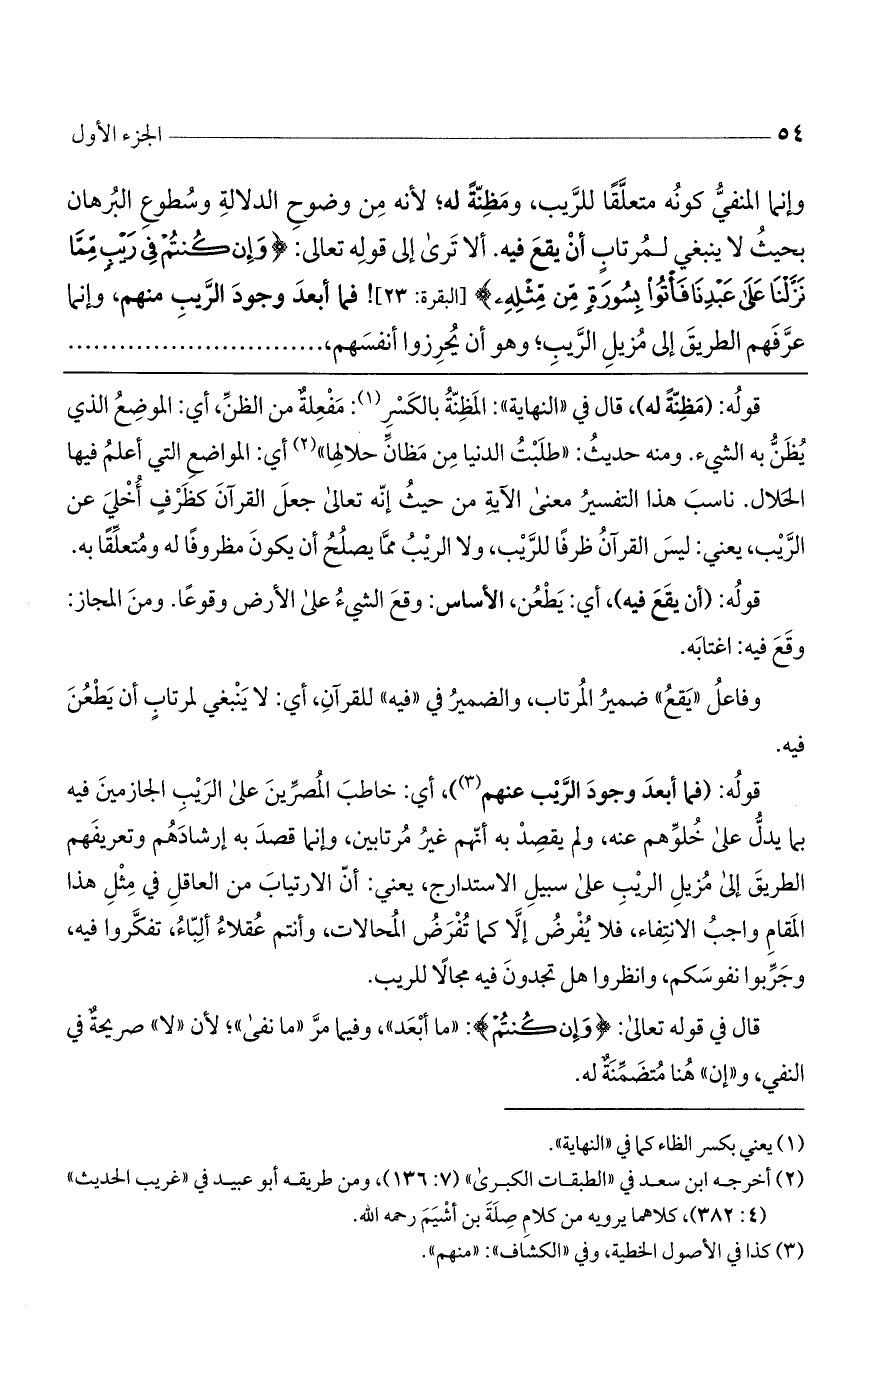 ٥٤ ــــــــــــــــــــ الجزء الأول
وإنما المنفيُّ كونُه متعلَّقًا للرَّيب، ومَظِنّةً له؛ لأنه مِن وضوحِ الدلالةِ وسُطوعِ البُرهان
بحيثُ لا ينبغي لـمُرتابٍ أنْ يقعَ فيه. ألا تَرىٰ إلى قولِه تعالى: ﴿وَإِن كُنتُمْ فِى رَيْبٍ مِّمَّا
نَزَّلْنَا عَلَىٰ عَبْدِنَا فَأْتُوا۟ بِسُورَةٍ مِّن مِّثْلِهِۦ﴾ [البقرة: ٢٣]! فما أبعدَ وجودَ الرَّيبِ منهم، وإنما
عرَّفَهم الطريقَ إلى مُزيلِ الرَّيبِ؛ وهو أن يُحرِزوا أنفسَهم،............................
قولُه: (مَظِنّةً له)، قال في «النهاية»: المَظِنّةُ بالكَسْرِ(١): مَفْعِلةٌ من الظنِّ، أي: الموضِعُ الذي
يُظَنُّ به الشيء. ومنه حديثُ: «طلَبْتُ الدنيا مِن مَظانِّ حلالِها»(٢) أي: المواضعِ التي أعلمُ فيها
الحَلال. ناسبَ هذا التفسيرُ معنىٰ الآيةِ من حيثُ إنّه تعالىٰ جعلَ القرآنَ كظَرْفٍ أُخْلِيَ عن
الرَّيْب، يعني: ليسَ القرآنُ ظرفًا للرَّيْب، ولا الريْبُ ممَّا يصلُحُ أن يكونَ مظروفًا له ومُتعلِّقًا به.
قولُه: (أن يقَعَ فيه)، أي: يَطْعُن، الأساس: وقعَ الشيءُ علىٰ الأرض وقوعًا. ومنَ المجاز:
وقَعَ فيه: اغتابَه.
وفاعلُ «يَقعُ» ضميرُ المُرتاب، والضميرُ في «فيه» للقرآنِ، أي: لا يَنْبغي لمرتابٍ أن يَطْعُنَ
فيه.
قولُه: (فما أبعدَ وجودَ الرَّيْب عنهم(٣))، أي: خاطبَ المُصرِّينَ علىٰ الرَيْبِ الجازمينَ فيه
بما يدلُّ علىٰ خُلوِّهم عنه، ولم يقصِدْ به أنّهم غيرُ مُرتابين، وإنما قصدَ به إرشادَهُم وتعريفَهم
الطريقَ إلىٰ مُزيلِ الريْبِ علىٰ سبيلِ الاستدارج، يعني: أنّ الارتيابَ من العاقلِ في مِثْلِ هذا
المَقامِ واجبُ الانتِفاء، فلا يُفْرضُ إلَّا كما تُفْرَضُ المُحالات، وأنتم عُقلاءُ ألِبّاءُ، تفكَّروا فيه،
وجَرِّبوا نفوسَكم، وانظروا هل تجدونَ فيه مجالًا للريب.
قال في قوله تعالىٰ: ﴿وَإِن كُنتُمْ﴾: «ما أبْعَد»، وفيما مرَّ «ما نفىٰ»؛ لأن «لا» صريحةٌ في
النفي، و«إن» هُنا مُتضَمِّنَةٌ له.
(١) يعني بكسر الظاء كما في «النهاية».
(٢) أخرجه ابن سعد في «الطبقات الكبرىٰ» (٧: ١٣٦)، ومن طريقه أبو عبيد في «غريب الحديث»
(٤: ٣٨٢)، كلاهما يرويه من كلامِ صِلَةَ بن أَشْيَمَ رحمه الله.
(٣) كذا في الأصول الخطية، وفي «الكشاف»: «منهم».